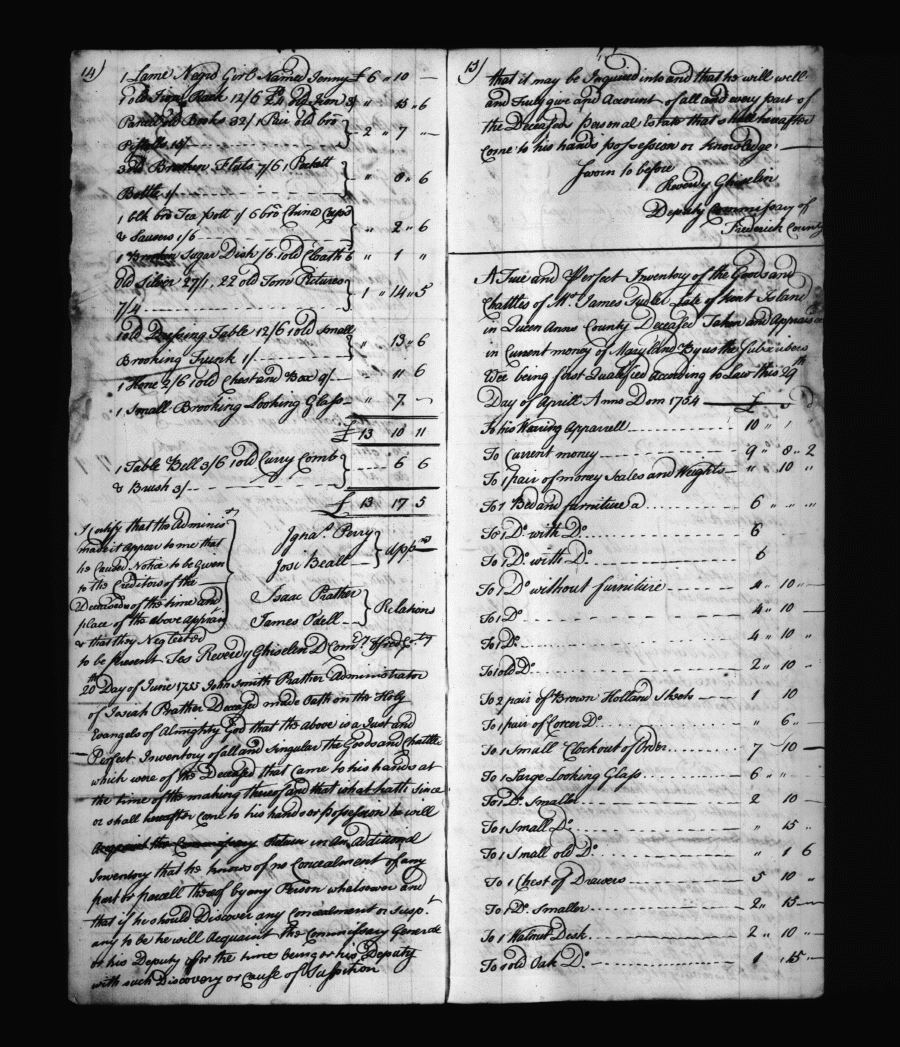 14)
1 Lame Negro Girl Named Jenny £ 6 " 10 —
1 old Iron Rack 12/6 old Iron 3/ " 15 " 6
Parcell old Books 32/1 Pair old bro
Pistolls 15/ } 2 " 7 " —
3 old Flats 7/6 1 Pockett
Bottle 1/ } " 8 " 6
1 blk bro Tea pott 1/ 6 bro China Cups
& Sausers 1/6 } " 2 " 6
1 Broken Sugar Dish /6 1 old Cloath 6 " 1 "
old Silver 27/1, 22 old Torn Pictures
7/4 } 1 " 14 " 5
1 old Dressing Table 12/6 1 old small
Brooking Trunk 1/ } " 13 " 6
1 Hone 2/6 1 old Chest and Box 9/ " 11 6
1 Small Brooking Looking Glass " 7 —
£ 13 10 11
1 Table Bell 3/6 1 old Curry Comb
& Brush 3/ } 6 6
£ 13 17 5
I Certify that the Adminis
made it appear to me that
he Caused Notice to be Given
to the Creditors of the
Deceased of the time and
place of the above
& that they Neglected
to be present
Ignas. Perry
Josi Beall } app
Isaac Prather
James Odell } Relations
Tes Reverdy Ghiselen D Comy. of fred Coty
20th Day of June 1755 John Smith Prather Administrator
of Josiah Prather Deceased made Oath on the Holy
Evangels of Almighty God that the above is a Just and
Perfect Inventory of all and Singular the Goods and Chattle
which were of the Deceased that Came to his hands at
the time of the making thereof and that what hath since
or shall hereafter come to his hands or possession he will
Return in An Aditional
Inventory that he knows of no Concealment of any
part or parcell thereof by any Person whatsoever and
that if he should Discover any Concealment or Suspt.
any to be he will Acquaint the Commissary General
or his Deputy for the time being or his Deputy
with such Discovery or Cause of Suspition
15)
that it may be Inquired into and that he will well
and Truly give and Account of all and every part of
the Deceased Personal Estate that shall hereafter
Come to his hands possession or knowledge
Sworn to before
Reverdy Ghiselin
Deputy Commissary of
Frederick County
A True and Perfect Inventory of the Goods and
Chattles of Mr. James Sudler Late of Kent Island
in Queen Anns County Deceased Taken and Appraised
in Current money of Maryland By us the Subscribers
Wee being first Qualifyed according to Law this 29th
Day of Aprill Anno Dom 1754 £ S D
To his Waring Apparrell 10 " "
To Current money 9 " 8 " 2
To 1 pair of money Scales and Weights " 10 "
To 1 Bed and furniture a 6 " " "
To 1 Do. with Do. 6
To 1 Do. with Do. 6
To 1 Do. without furniture 4 " 10 " —
To 1 Do 4 " 10 —
To 1 Do. 4 " 10 "
To 1 old Do. 2 " 10 "
To 2 pair of Brown Holland Sheets 1 10
To 1 pair of Corcer Do. " 6 "
To 1 Small Clock out of Order 7 10 —
To 1 Large Looking Glass 6 " "
To 1 Do. Smaller 2 10 —
To 1 Small Do. " 15 "
To 1 Small old Do. " 1 6
To 1 Chest of Drawers 5 10 "
To 1 Do. Smaller 2 " 15 —
To 1 Walnut Desk 2 " 10 —
To 1 old Oak Do. 1 " 15 —